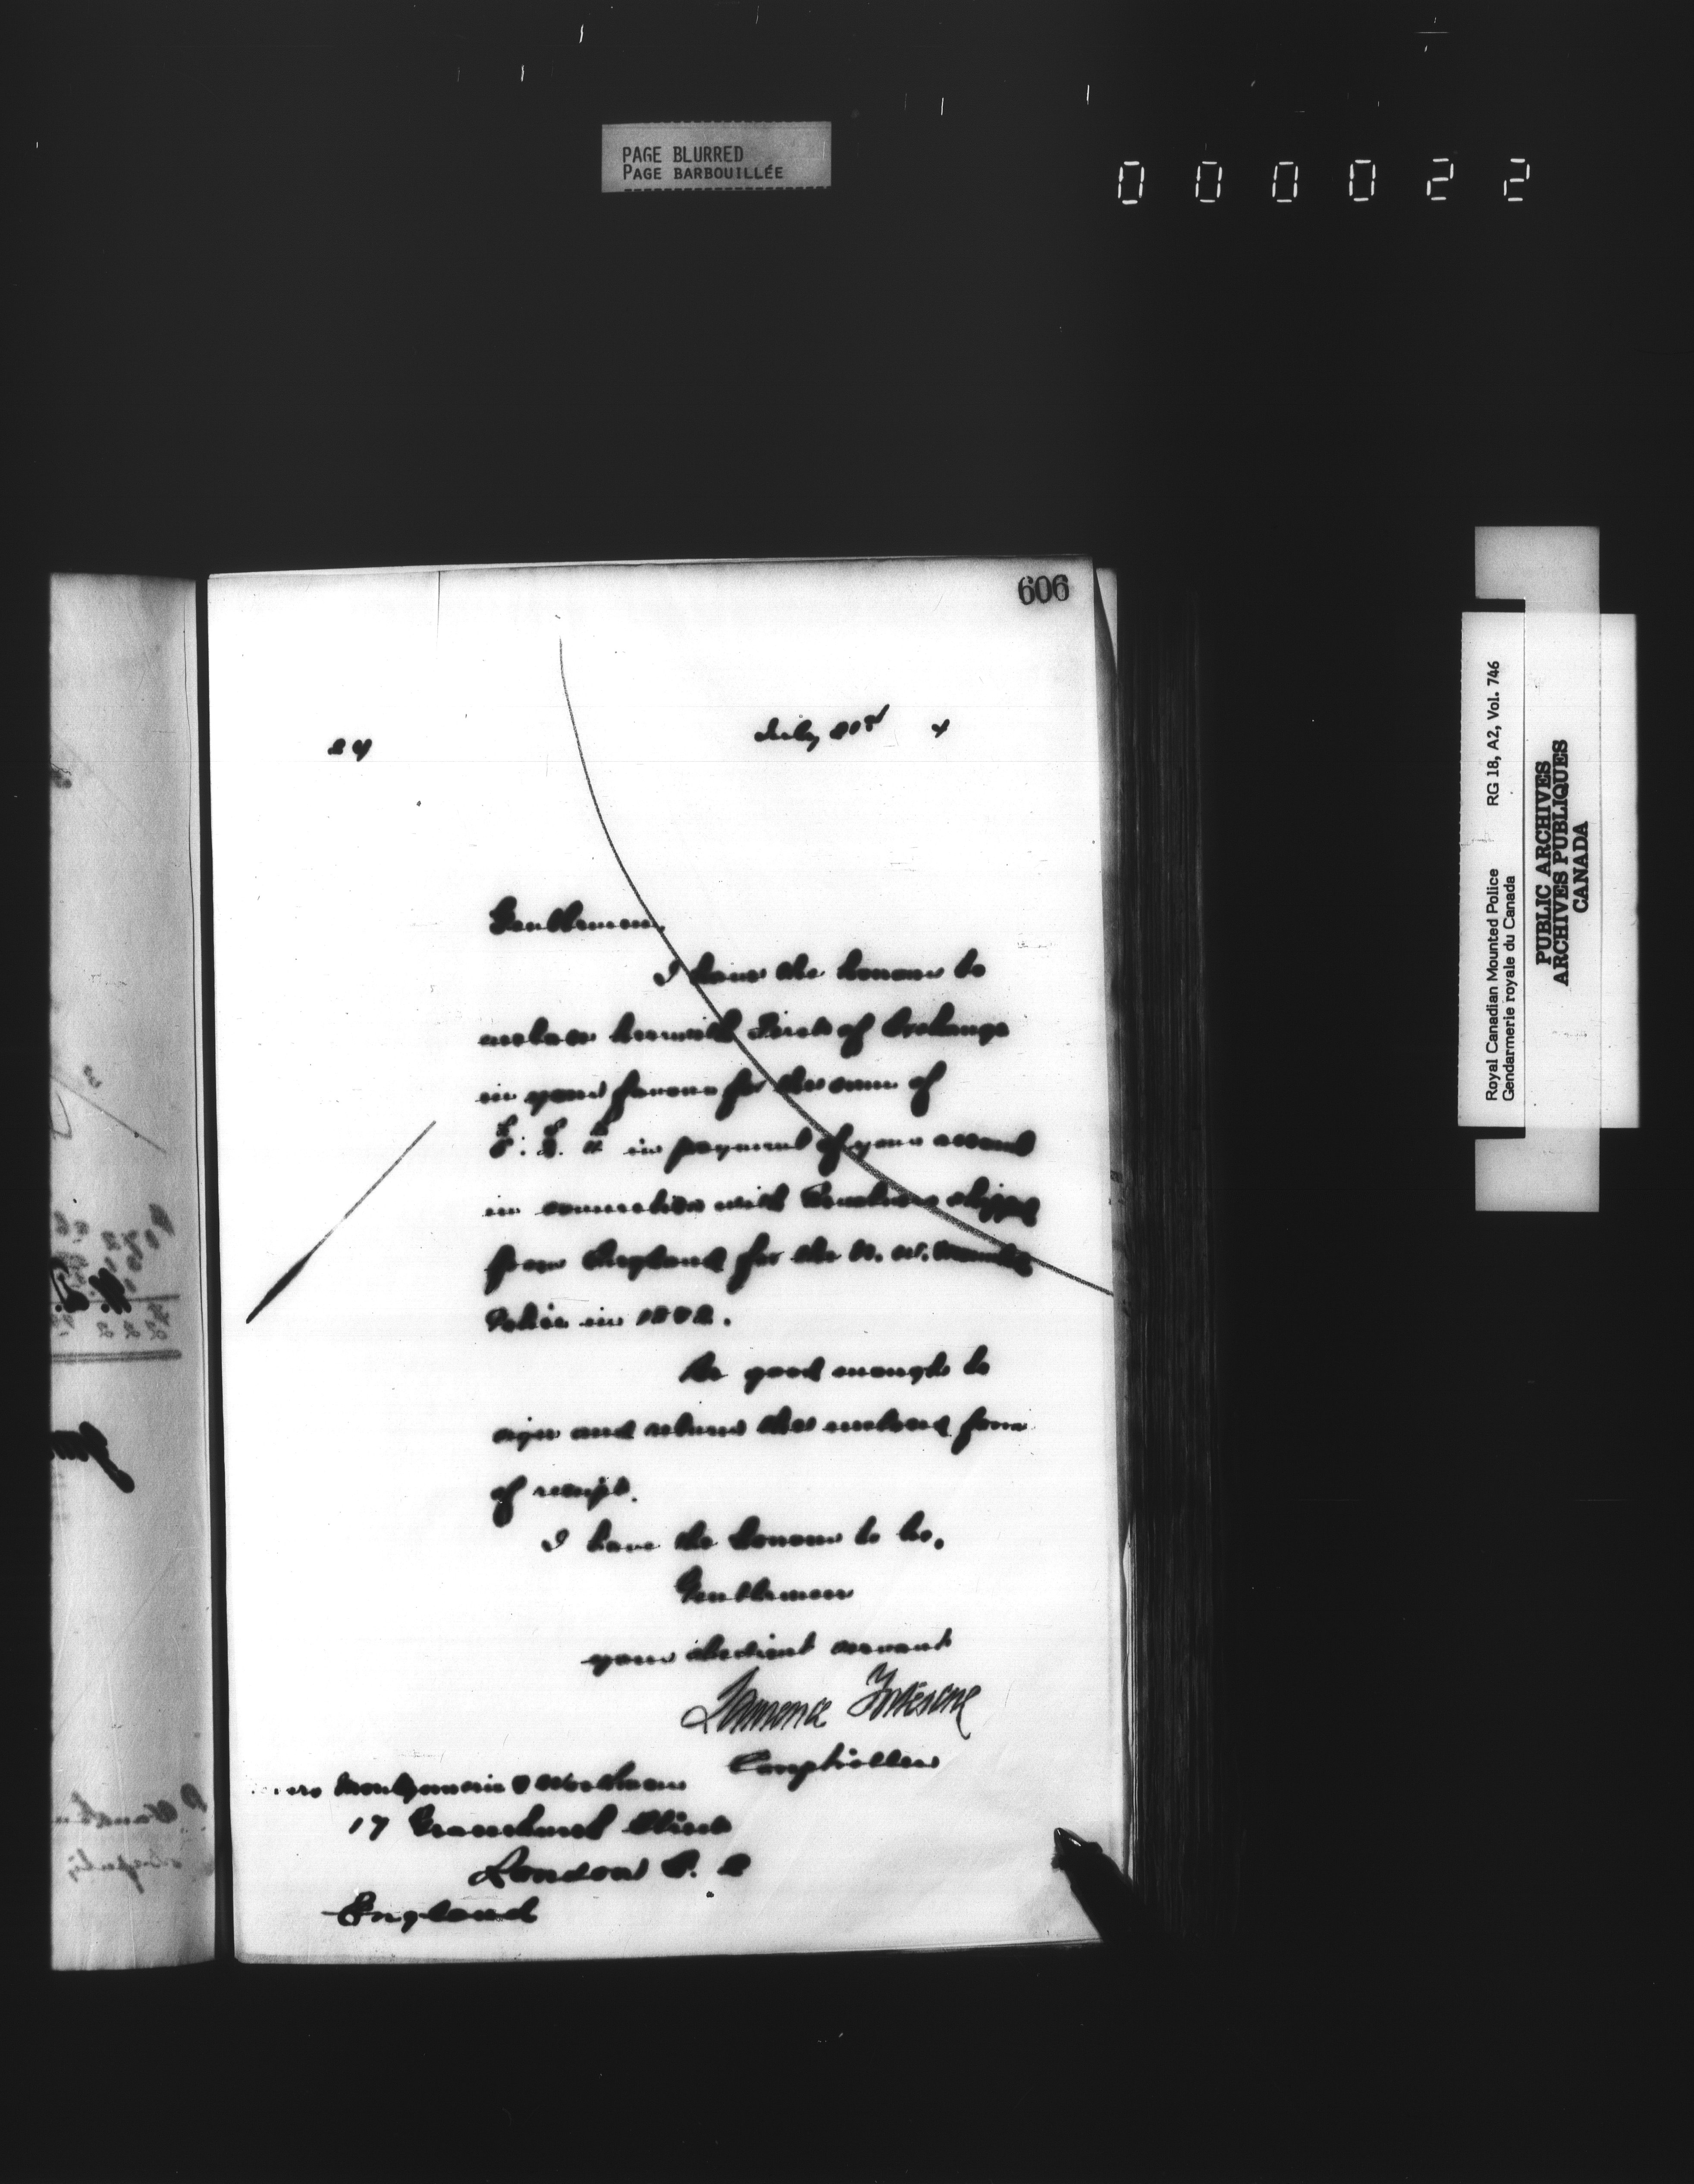 PAGE BLURRED
PAGE BARBOUILLÉE
000022
606
24
July 21st 4
Gentlemen,
I have the honour to
enclose herewith First of Exchange
in your favour for the sum of
£ s d
in payment of your account
in connection with Ammunition shipped
from England for the N. W. Mounted
Police in 1882.
Be good enough to
sign and return the enclosed form
of receipt.
I have the honour to be,
Gentlemen
your obedient servant
Lawrence Fortescue
Comptroller
Montgomerie & Workman
17 Gracechurch Street
London E. C
England
Royal Canadian Mounted Police RG 18, A2, Vol. 746
Gendarmerie royale du Canada
PUBLIC ARCHIVES
ARCHIVES PUBLIQUES
CANADA